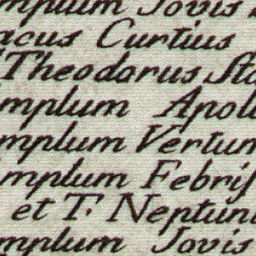 mplum Jovis
acus Curtius
Theodorus Sta
mplum Apol
mplum Vertum
mplum Febris
et T. Neptun
mplum Jovis